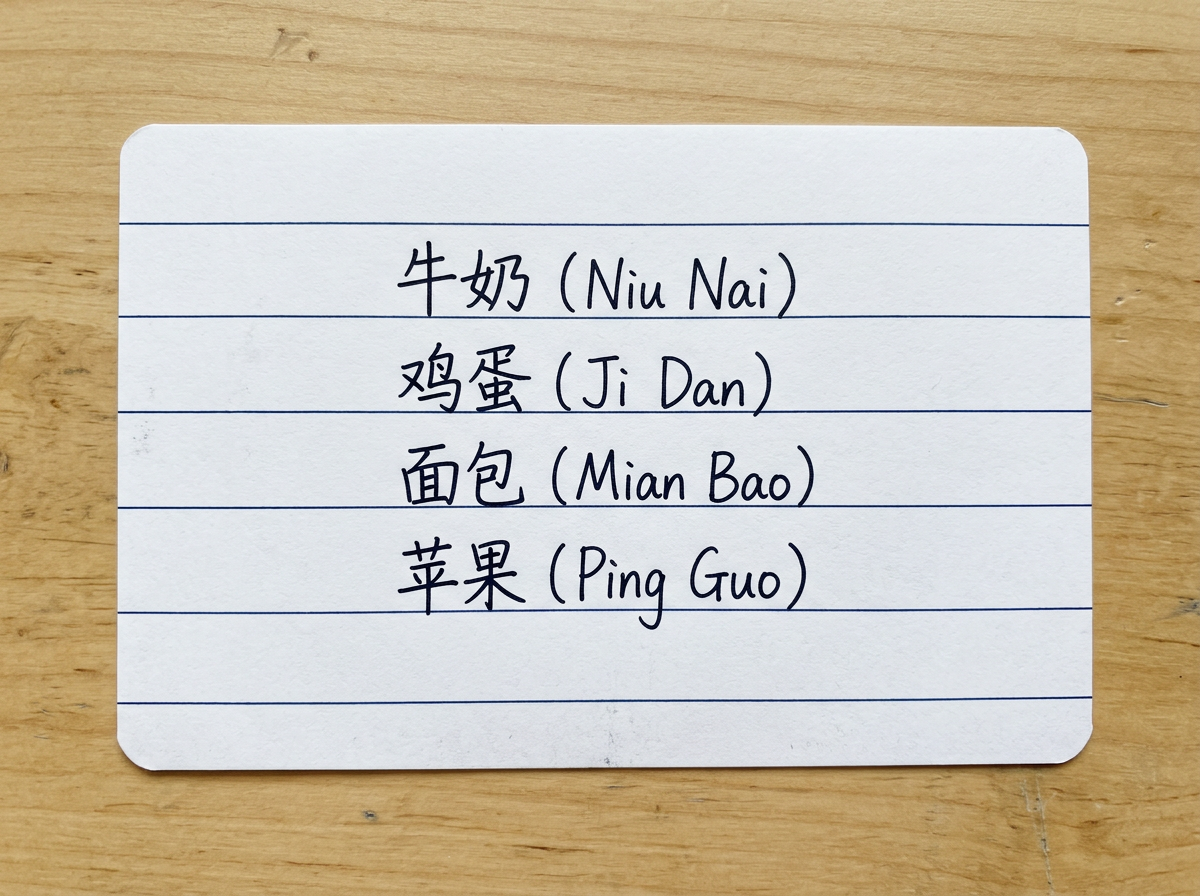 牛奶 (Niu Nai)
鸡蛋 (Ji Dan)
面包 (Mian Bao)
苹果 (Ping Guo)